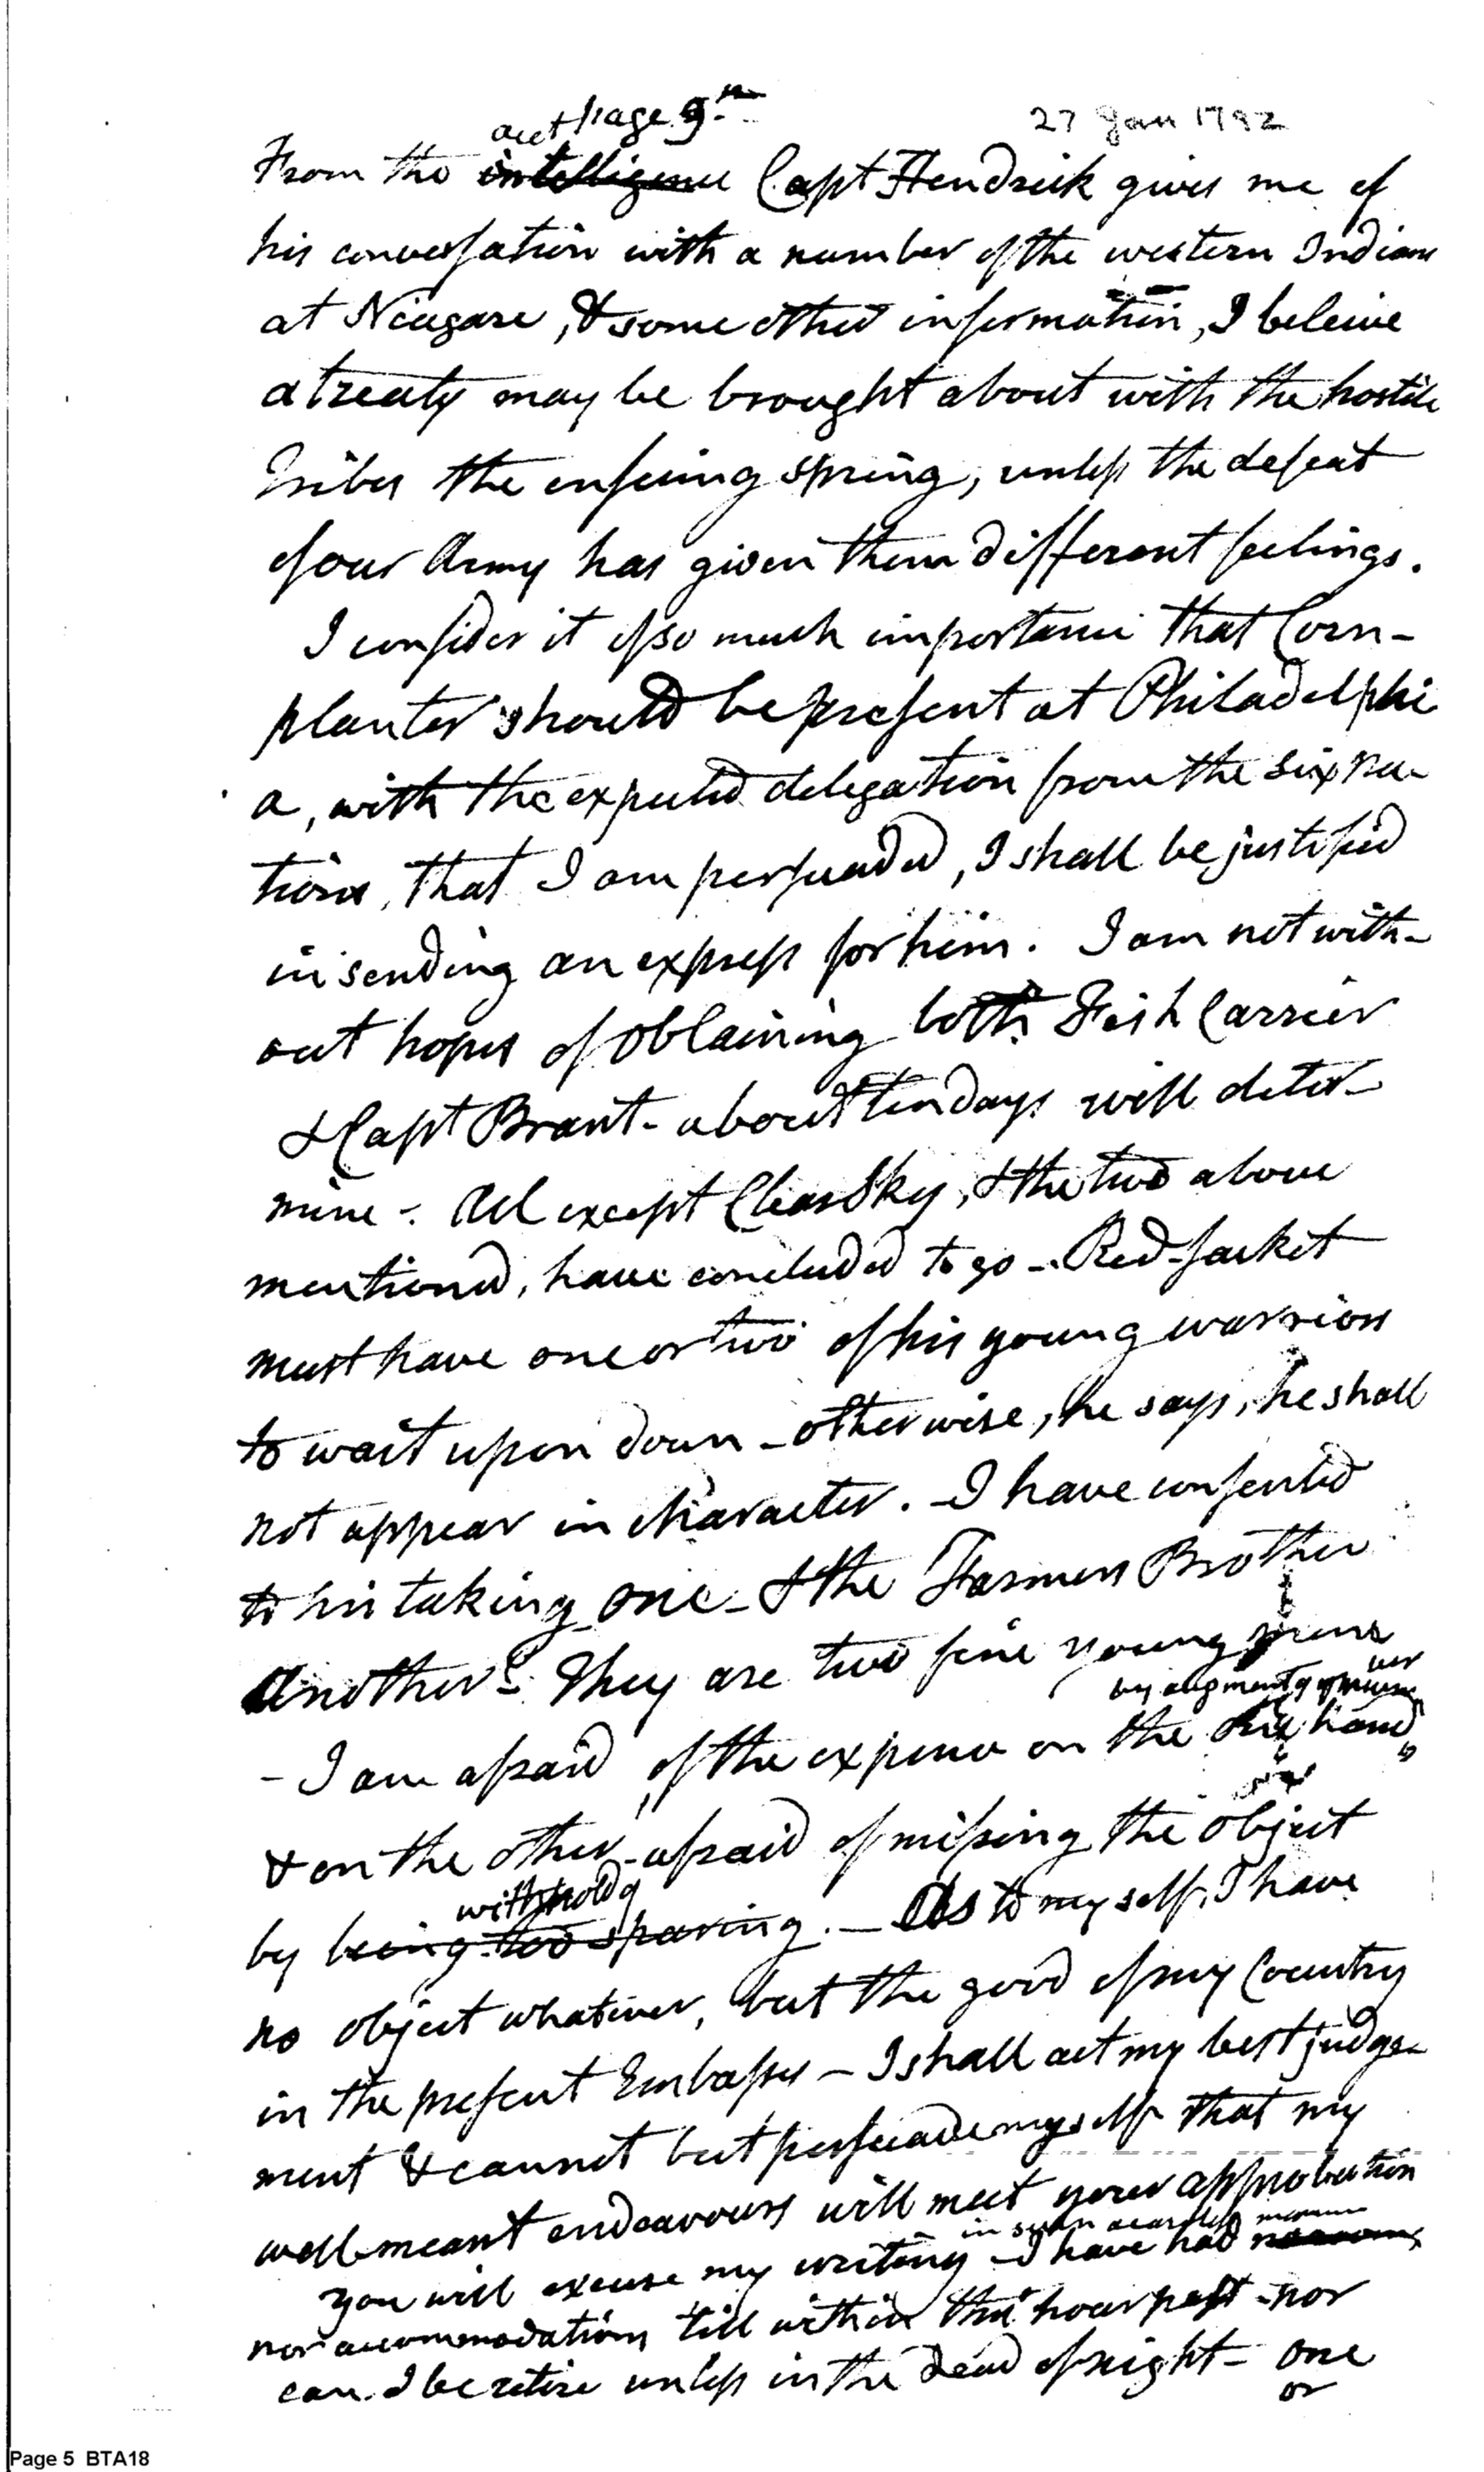 page 9th
27 Jan 1792
acct
From the intelligence Capt Hendrick gives me of
his conversation with a number of the western Indians
at Niagara, & some other information, I beleive
a treaty may be brought about with the hostile
Tribes the ensuing spring, unless the defeat
of our Army has given them different feelings.
I consider it of so much importance that Corn-
planter should be present at Philadelphi
a, with the expected delegation from the six na-
tions, that I am persuaded, I shall be justified
in sending an express for him. I am not with-
out hopes of obtaining both Fish Carrier
& Capt Brant - about ten days will deter-
mine -. All except Clear Sky, & the two above
mentioned, have concluded to go - Red-Jacket
must have one or two of his young warriors
to wait upon down - otherwise, he says, he shall
not appear in character. - I have consented
to his taking one - & the Farmers Brother
another - They are two fine young mens
by augmentg
- I am afraid of the expence on the one hand
& on the other - afraid of missing the object
withholdg
by being too sparing. - As to myself, I have
no object whatever, but the good of my Country
in the present Embassy - I shall act my best judge-
ment & cannot but persuade myself that my
well-meant endeavours will meet your approbation
in such careless manner
you will excuse my writing - I have had no room,
nor accommodations till within this hour past - nor
can I be retire unless in the dead of night - one
or
Page 5 BTA18